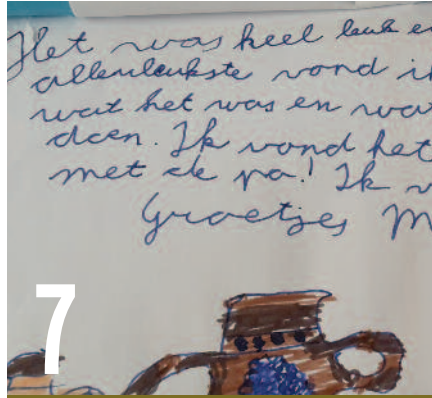 Het was heel leuk en
allerleukste vond ik
wat het was en wat
doen. Ik vond het
met de pa! Ik v
Groetjes M
7